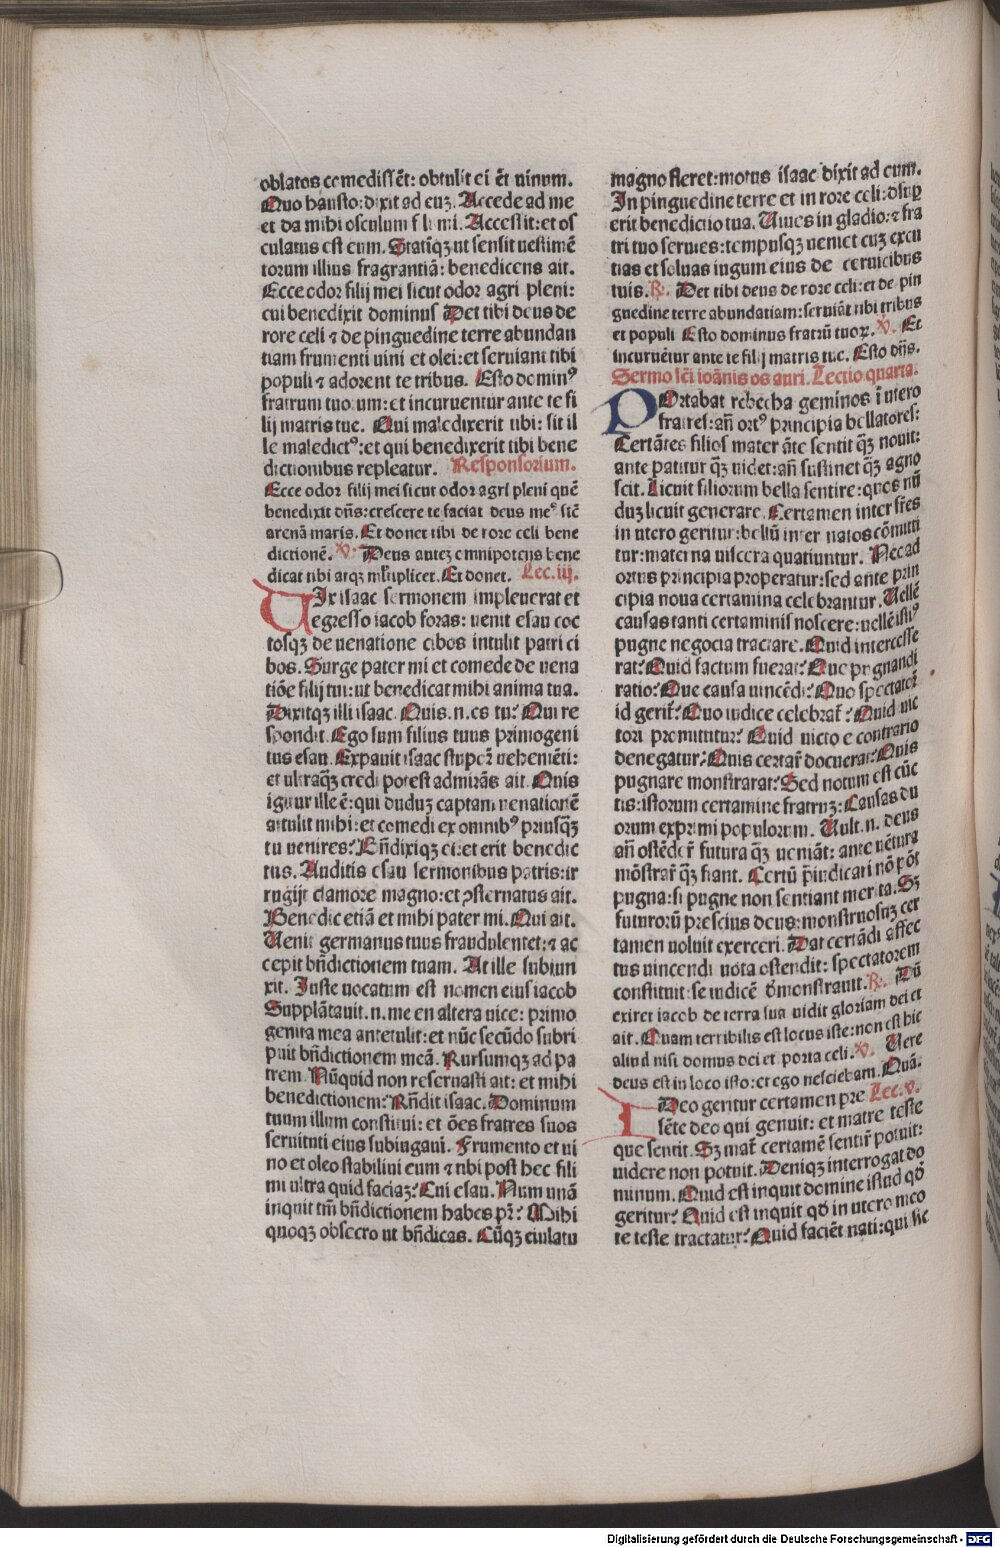 oblatos comedissēt: obtulit ei ēt uinum.
Quo hausto: dixit ad euꝫ. Accede ad me
et da mihi osculum fili mi. Accessit: et os
culatus est eum. Statiqꝫ ut sensit uestimē
torum illius fragrantiā: benedicens ait.
Ecce odor filij mei sicut odor agri pleni:
cui benedixit dominus Det tibi deus de
rore celi ⁊ de pinguedine terre abundan
tiam frumenti uini et olei: et seruiant tibi
populi ⁊ adorent te tribus. Esto dominꝰ
fratrum tuorum: et incuruentur ante te fi
lij matris tue. Qui maledixerit tibi: sit il
le maledictꝰ: et qui benedixerit tibi bene
dictionibus repleatur. Responsorium.
Ecce odor filij mei sicut odor agri pleni quē
benedixit dn̄s: crescere te faciat deus meꝰ sic̄
arenā maris. Et donet tibi de rore celi bene
dictionē. ℣. Deus autēꝫ omnipotens bene
dicat tibi atqꝫ ml̄tiplicet. Et donet. Lec. iij.
VIx isaac sermonem impleuerat et
egresso iacob foras: uenit esau coc
tosqꝫ de uenatione cibos intulit patri ci
bos. Surge pater mi et comede de uena
tiōe filij tui: ut benedicat mihi anima tua.
Dixitqꝫ illi isaac. Quis .n. es tu? Qui re
spondit. Ego sum filius tuus primogeni
tus esau. Expauit isaac stupor̄ uehemēti:
et ultraqꝫ credi potest admirās ait. Quis
igitur ille ē: qui duduꝫ captam uenationē
attulit mihi: et comedi ex omnibꝰ priusqꝫ
tu uenires? Bn̄dixiqꝫ ei: et erit benedic
tus. Auditis esau sermonibus patris: ir
rugijt clamore magno: et ꝯsternatus ait.
Benedic etiā et mihi pater mi. Qui ait.
Uenit germanus tuus fraudulenter: ⁊ ac
cepit bn̄dictionem tuam. At ille subiun
xit. Juste uocatum est nomen eius iacob
Supplātauit .n. me en altera uice: primo
genita mea antetulit: et nūc secūdo subri
puit bn̄dictionem meā. Rursumqꝫ ad pa
trem. Nūquid non reseruasti ait: et mihi
benedictionem? Rn̄dit isaac. Dominum
tuum illum constitui: et ōes fratres suos
seruituti eius subiugaui. Frumento et ui
no et oleo stabiliui eum ⁊ tibi post hec fili
mi ultra quid faciaꝫ? Cui esau. Num unā
inquit tm̄ bn̄dictionem habes pr̄? Mihi
quoqꝫ obsecro ut bn̄dicas. Cūqꝫ eiulatu
magno fleret: motus isaac dixit ad eum.
In pinguedine terre et in rore celi: dsuꝑ
erit benedictio tua. Uiues in gladio: ⁊ fra
tri tuo seruies: tempusqꝫ ueniet cuꝫ excu
tias et soluas iugum eius de ceruicibus
tuis. ℟. Det tibi deus de rore celi: et de pin
guedine terre abundātiam: seruiāt tibi tribus
et populi Esto dominus fratrū tuoꝝ. ℣. Et
incuruētur ante te filij matris tue. Esto dn̄s.
Sermo sc̄i ioānis os auri. Lectio quarta.
POrtabat rebecha geminos ī utero
fratres: an̄ ortꝰ principia bellatores:
Certātes filios mater āte sentit qꝫ nouit:
ante patitur qꝫ uidet: an̄ sustinet qꝫ agno
scit. Licuit filiorum bella sentire: quos nū
duꝫ licuit generare. Certamen inter fr̄es
in utero geritur: bellū inter natos cōmitti
tur: materna uiscera quatiuntur. Nec ad
ortus principia properatur: sed ante prin
cipia noua certamina celebrantur. Uellē
causas tanti certaminis noscere: uellē istiꝰ
pugne negocia tractare. Quid intercesse
rat? Quid factum fuerat? Que pugnandi
ratio? Que causa uincēdi? Quo spectator̄
id gerit̄? Quo iudice celebrat̄? Quid uic
tori promittitur? Quid uicto e contrario
denegatur? Quis certar̄ docuerat? Quis
pugnare monstrarat? Sed notum est cūc
tis: istorum certamine fratruꝫ: Causas du
orum exprimi populorum. Uult .n. deus
an̄ ostēder̄ futura qꝫ ueniāt: ante uētura
mōstrar̄ qꝫ fiant. Certū p̄iudicari nō pōt
pugna: si pugne non sentiant merita. Sꝫ
futurorū prescius deus: monstruosuꝫ cer
tamen uoluit exerceri. Dat certādi affec
tus uincendi uota ostendit: spectatorem
constituit: se iudicē dmonstrauit. ℟. Dū
exiret iacob de terra sua uidit gloriam dei et
ait. Quam terribilis est locus iste: non est hic
aliud nisi domus dei et porta celi. ℣. Uere
deus est in loco isto: et ego nesciebam. Quā.
IDeo geritur certamen pre Lec. v.
sēte deo qui genuit: et matre teste
que sentit. Sꝫ mat̄ certamē sentir̄ potuit:
uidere non potuit. Deniqꝫ interrogat do
minum. Quid est inquit domine istud qd̄
geritur? Quid est inquit qd̄ in utero meo
te teste tractatur? Quid faciēt nati: qui sic
Digitalisierung gefördert durch die Deutsche Forschungsgemeinschaft - DFG